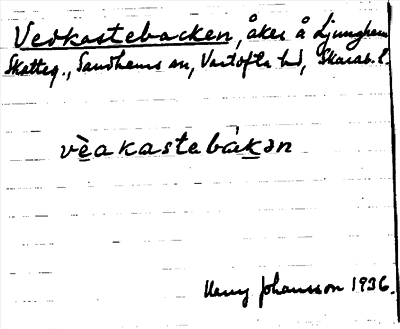 Vedkastebacken, åker å Ljunghem
Skatteg., Sandhems sn, Vartofta hd, Skarab. l.
vèakastebàkən
Harry Johansson 1936.